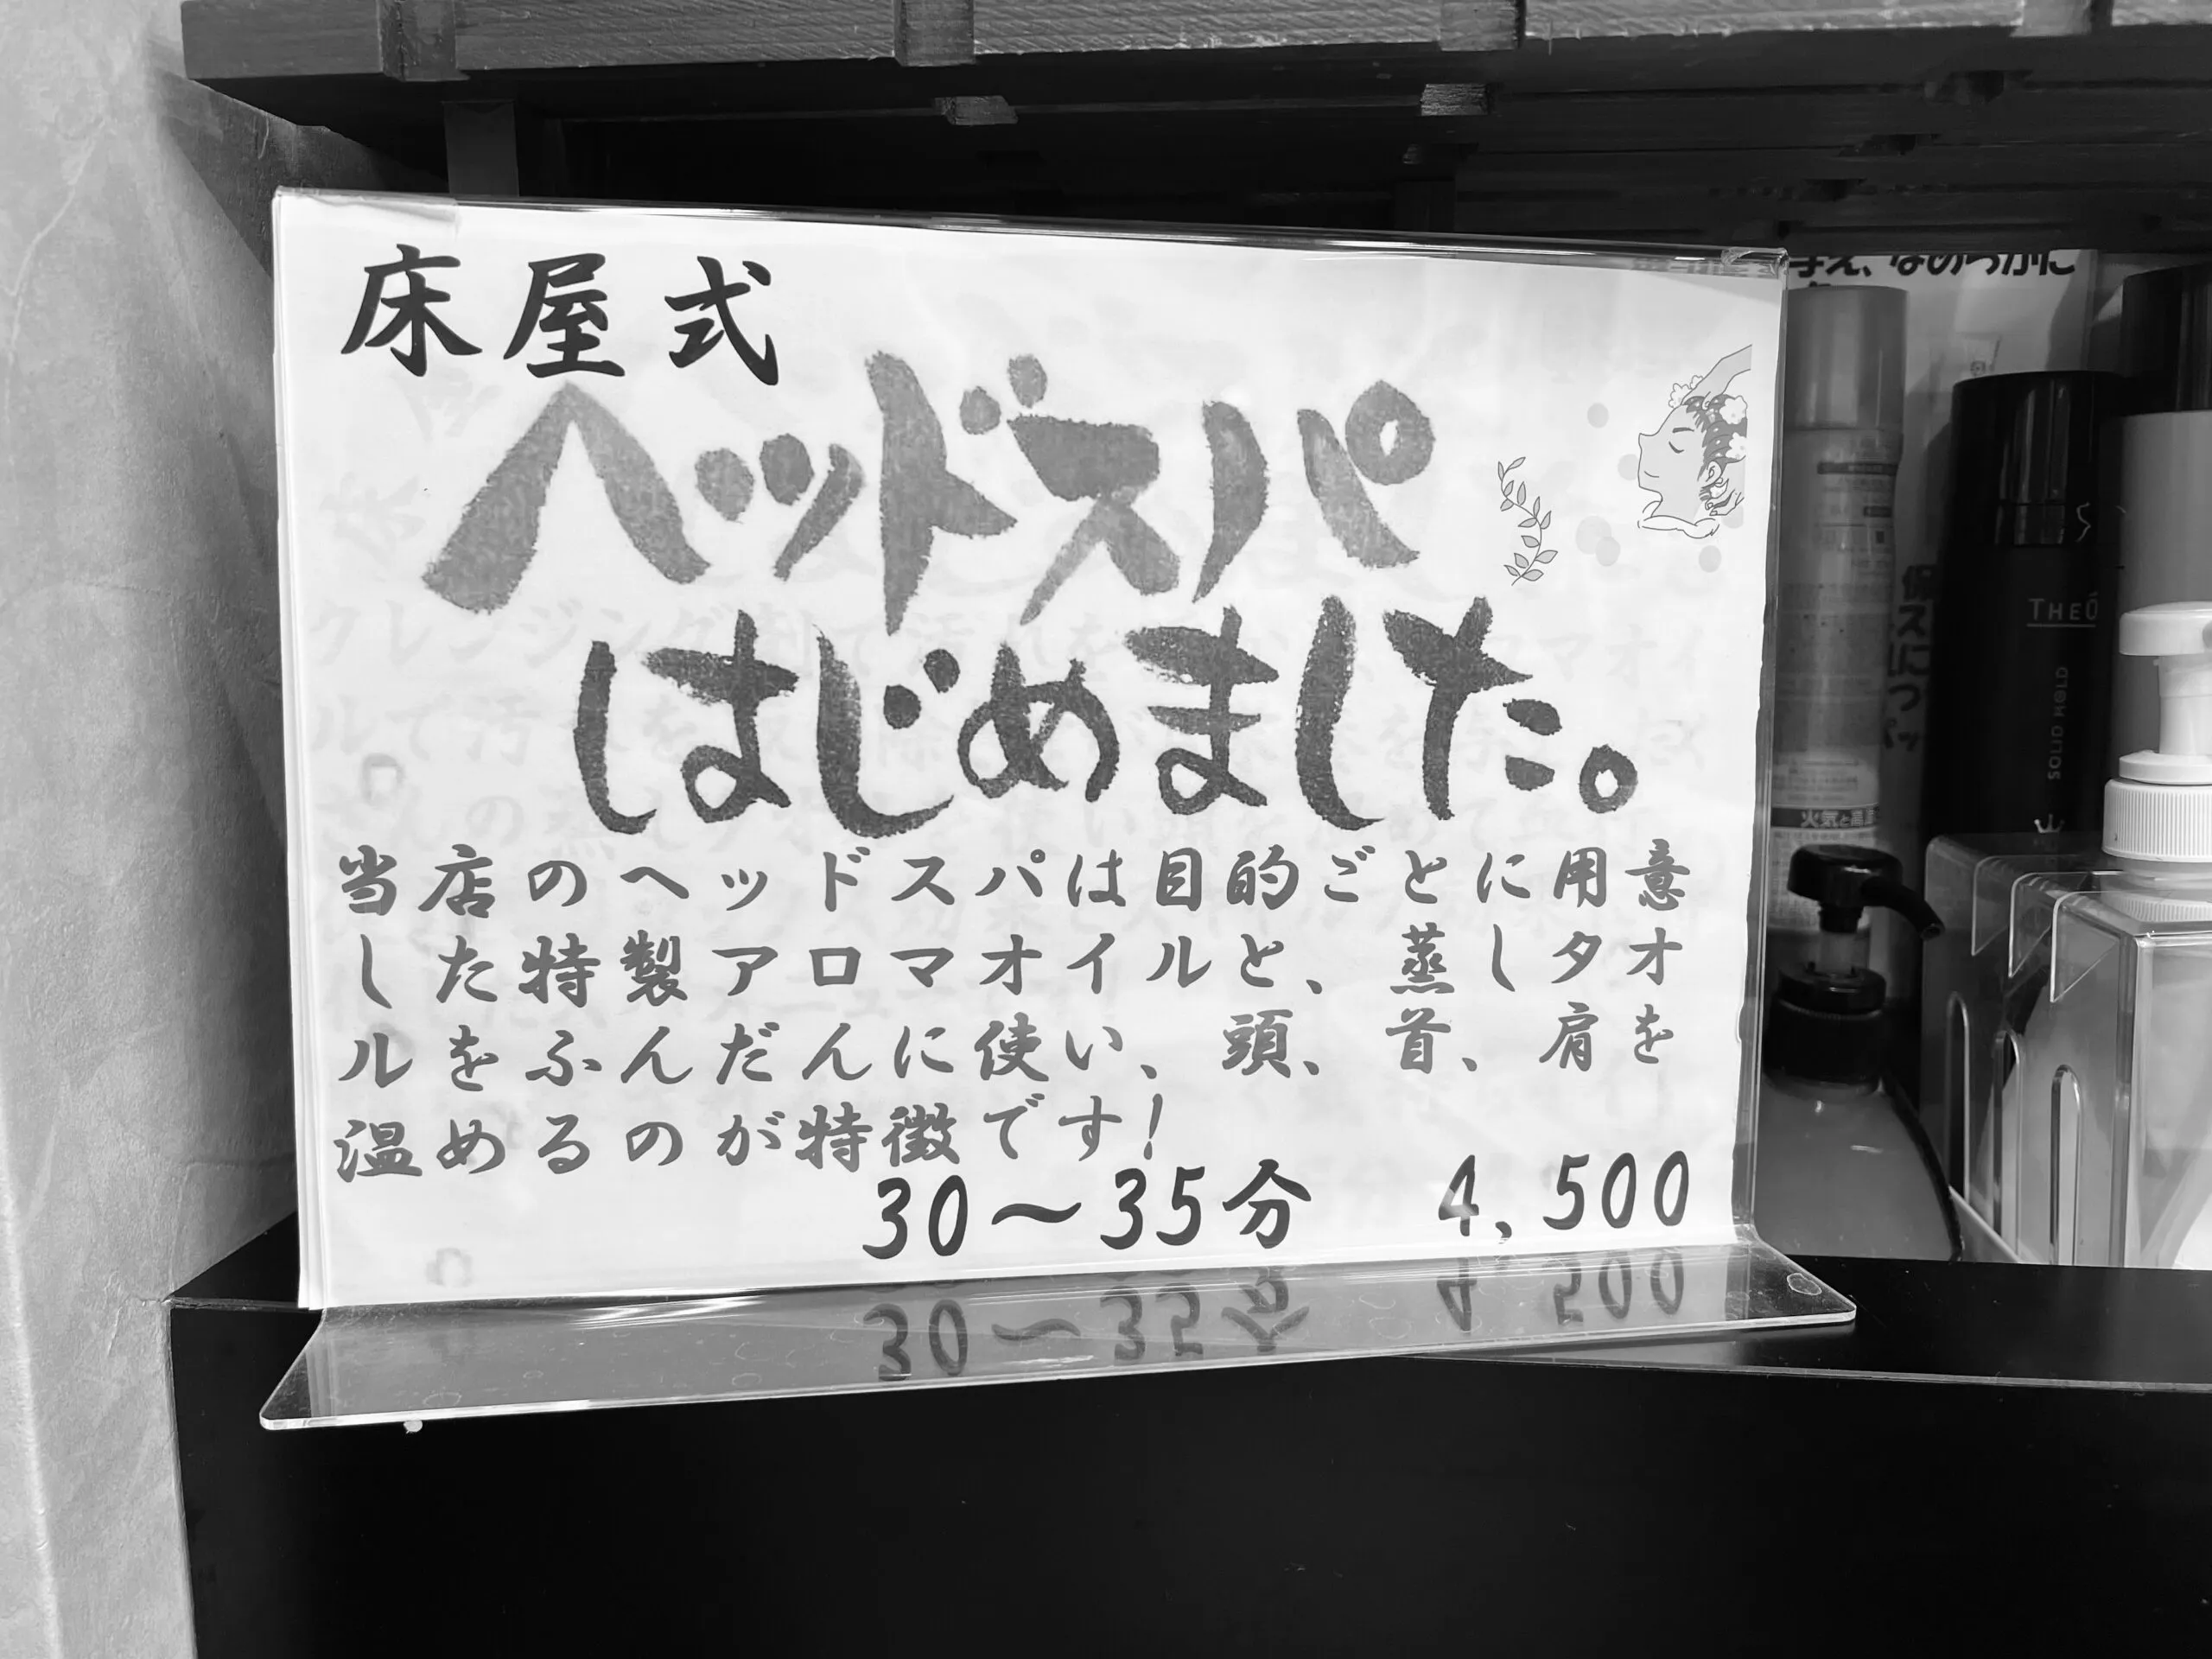 床屋式
ヘッドスパ
はじめました。
当店のヘッドスパは目的ごとに用意
した特製アロマオイルと、蒸しタオ
ルをふんだんに使い、頭、首、肩を
温めるのが特徴です!
30〜35分 4,500
なめらかに
THEO
SOLID HOLD
火気と高温